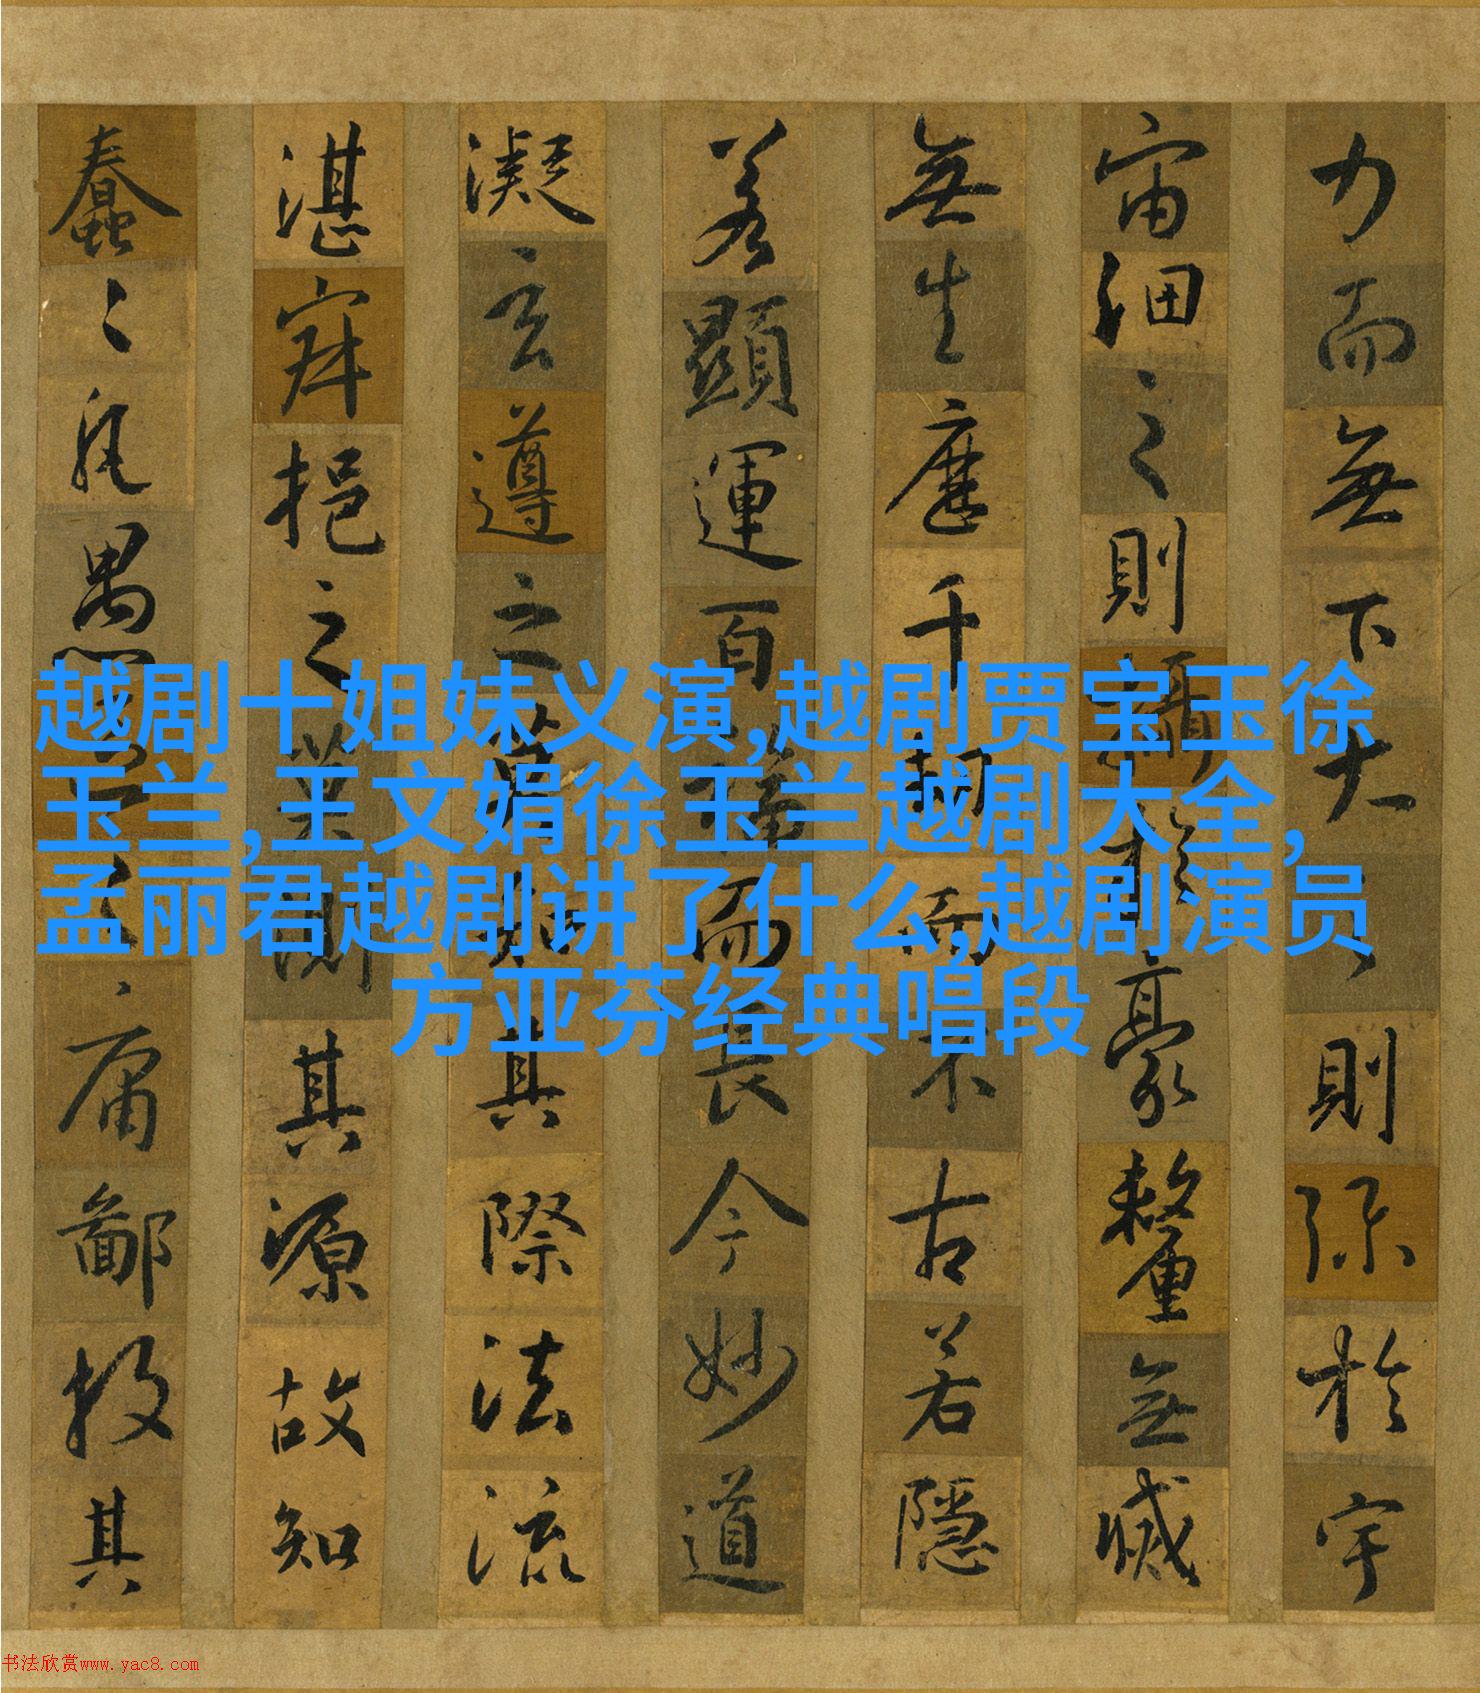 力而無下大之則弥於宇
宙細之則攝於豪釐無滅
無生歷千劫而不古若隱
若顯運百福而長今妙道
凝玄遵之莫知其際法流
湛寂挹之莫測其源故知
蠢々凡愚區々庸鄙投其
越剧十姐妹义演,越剧贾宝玉徐
玉兰,王文娟徐玉兰越剧大全,
孟丽君越剧讲了什么,越剧演员
方亚芬经典唱段
书法欣赏www.yac8.com